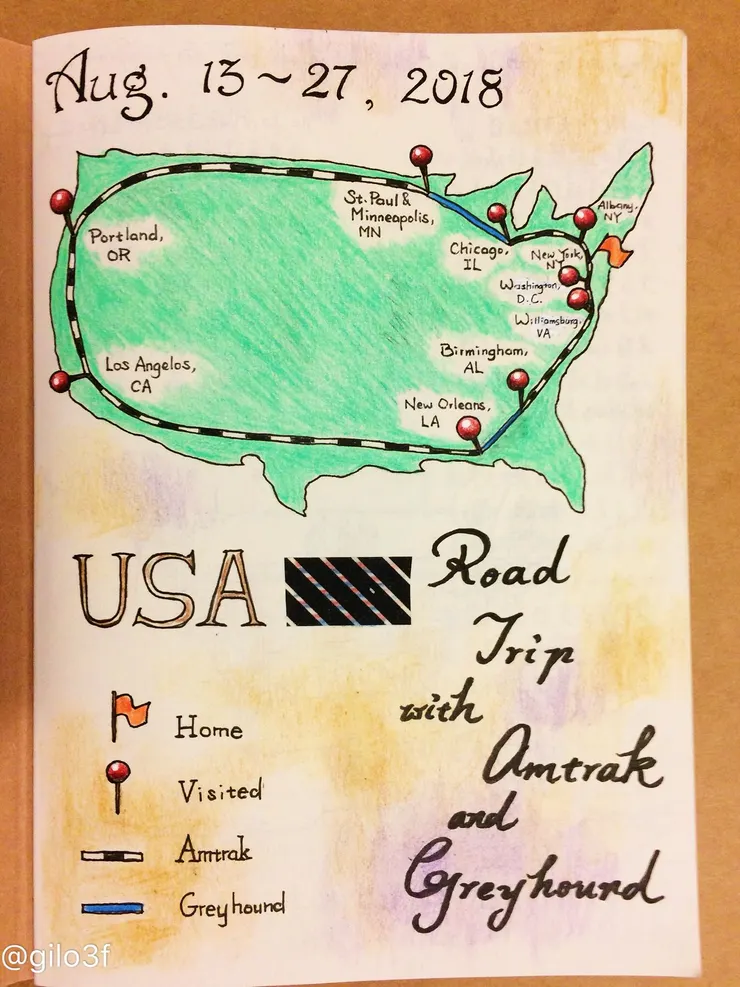 Aug. 13 ~ 27, 2018
St. Paul &
Minneapolis,
MN
Albany,
NY
Portland,
OR
Chicago,
IL
New York,
NY
Washington,
D.C.
Williamsburg,
VA
Birmingham,
AL
Los Angelos,
CA
New Orleans,
LA
USA
Road
Trip
with
Amtrak
and
Greyhound
Home
Visited
Amtrak
Greyhound
@gilo3f